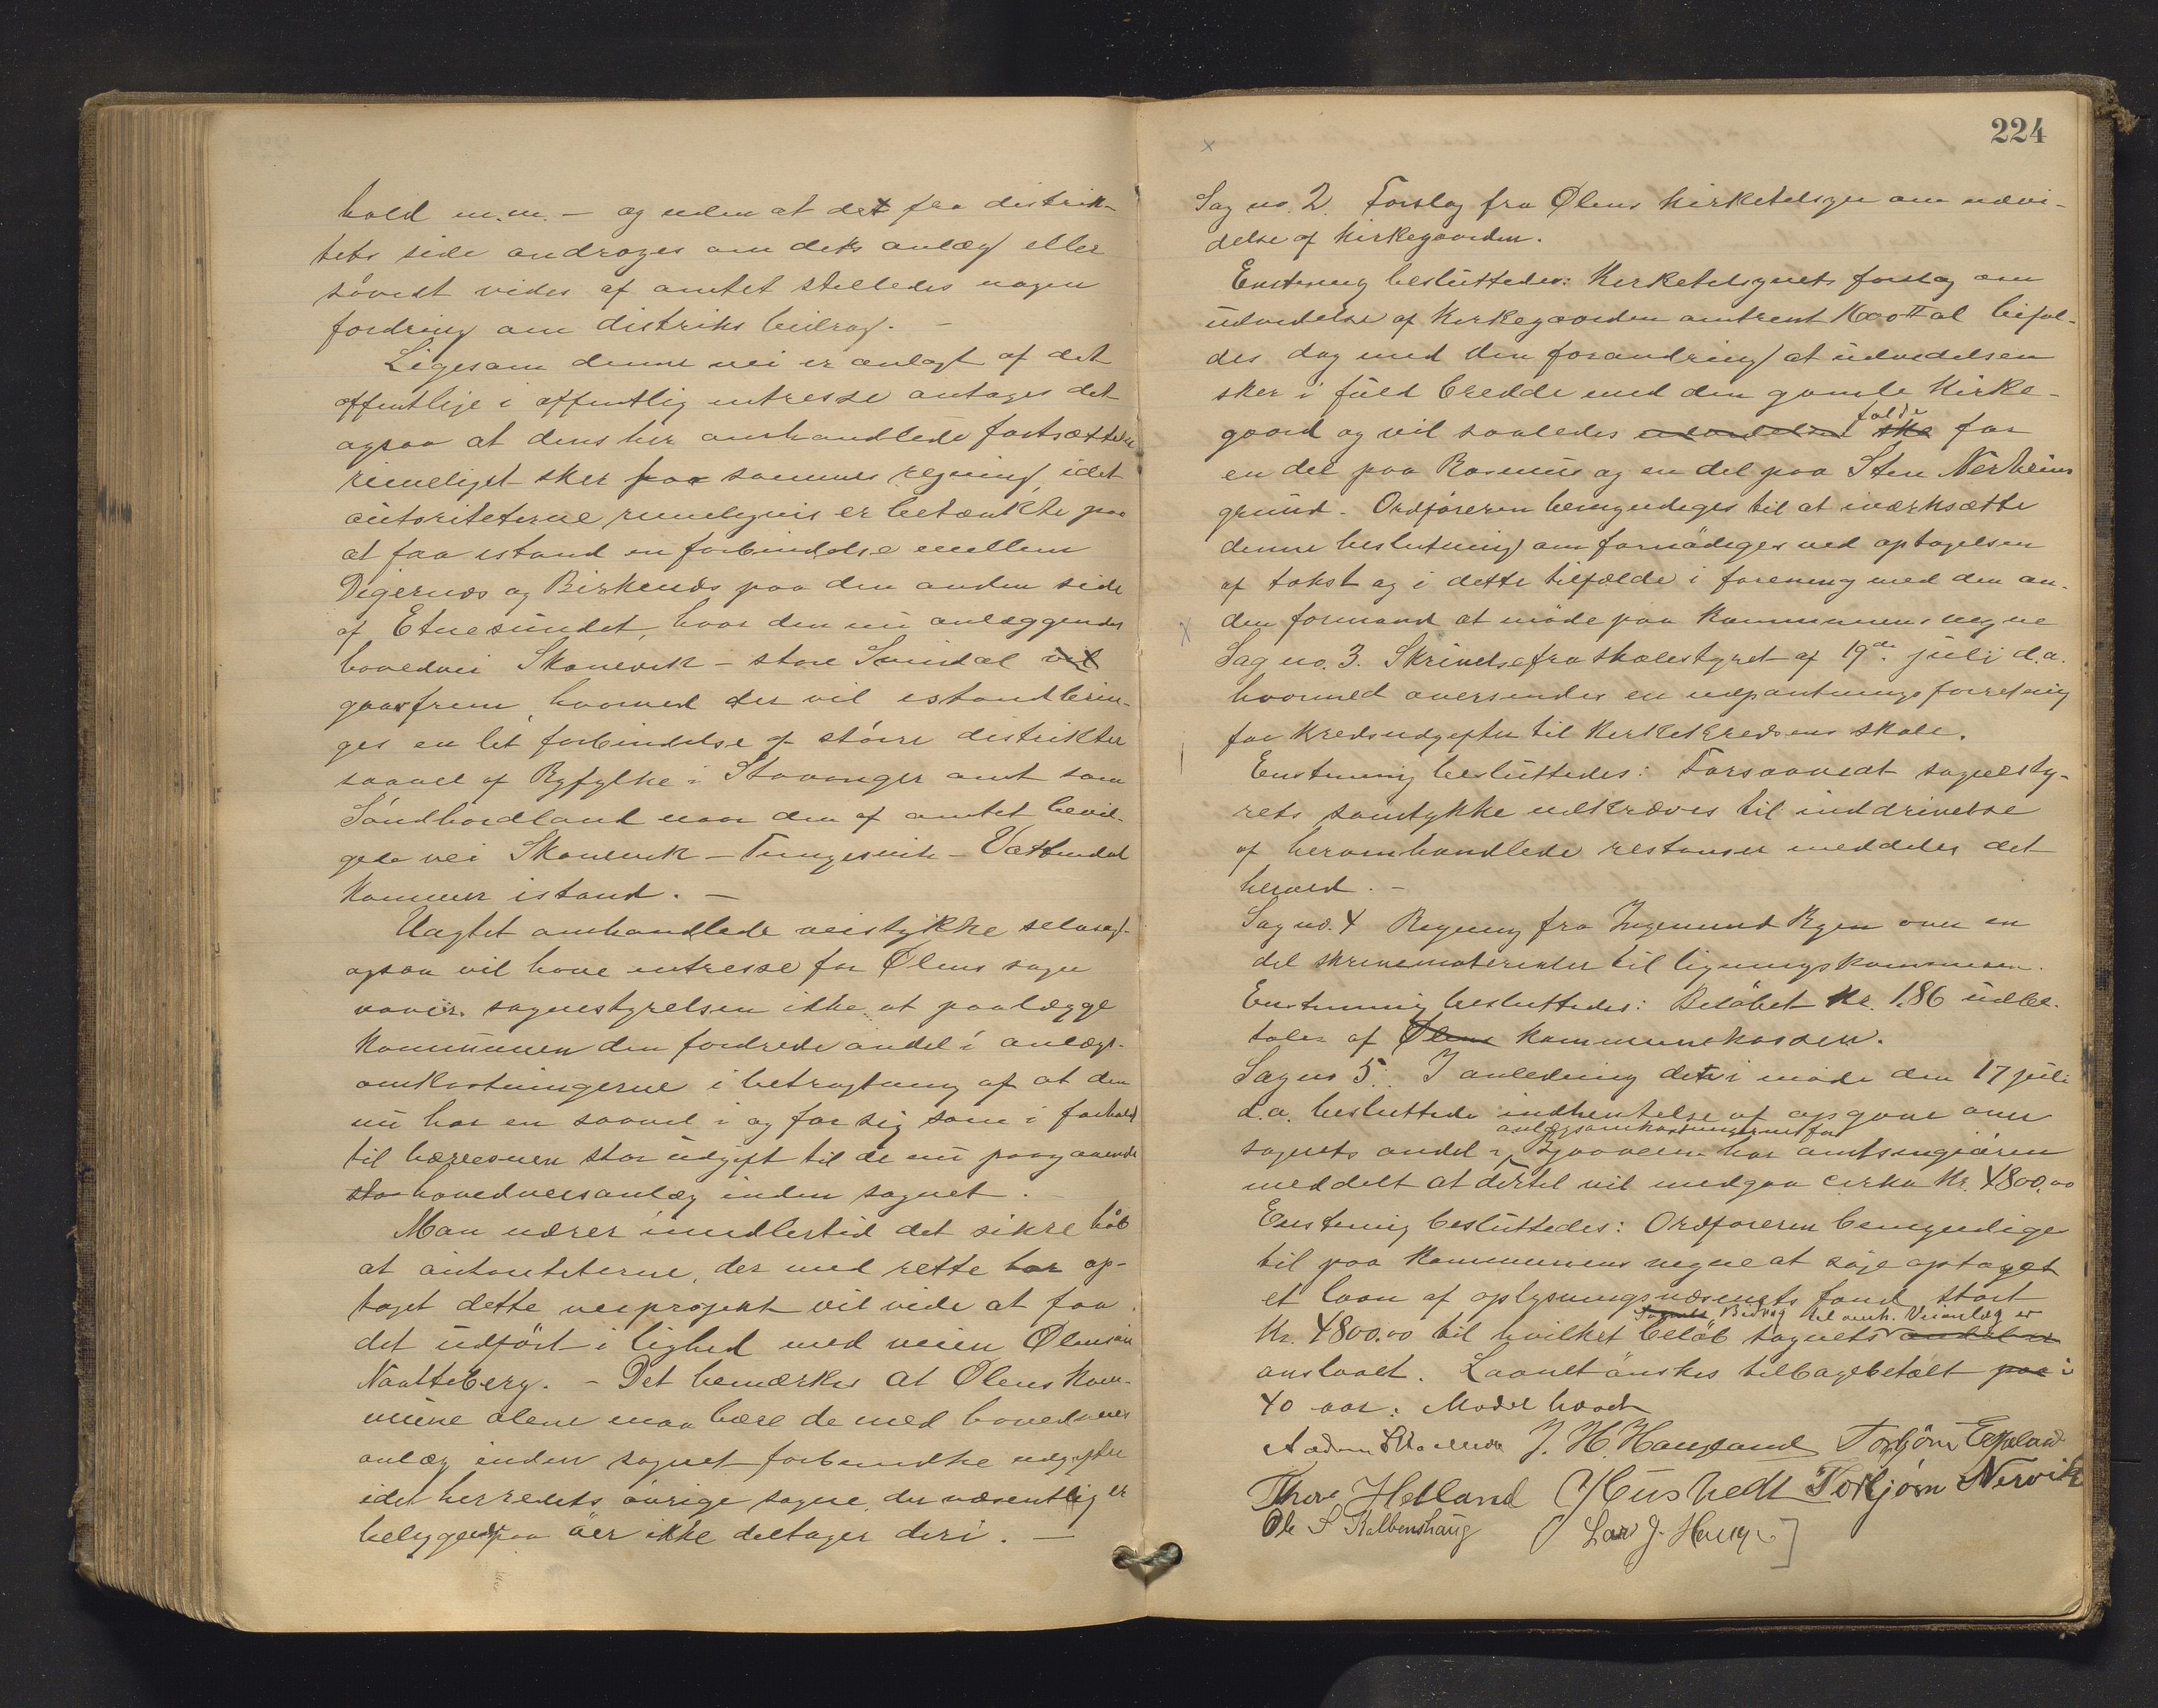 hold m.m. – og uden at det fra distrik-
tets side androges om dets anlæg eller
såvidt vides af amtet stilledes nogen
fordring om distrikts bidrag. –
Ligesom denne vei er anlagt af det
offentlige i offentlig intresse antages det
ogsaa at dens her omhandlede fortsættelse
rimeligst sker paa sammes regning, idet
autoriteterne rimeligvis er betænkte paa
at faa istand en forbindelse mellem
Digernæs og Birkenæs paa den anden side
af Etnesundet, hvor den nu anlæggendes
hovedvei Skonevik – store Svindal vil
gaar frem, hvorved der vil istandbrin-
ges en let forbindelse af större distrikter
saavel af Ryfylke i Stavanger amt som
Söndhordland naar den af amtet bevil-
gede vei Skonevik – Tungesvik – Vattendal
kommer istand. –
Uagtet omhandlede veistykke selvsagt
ogsaa vil have intresse for Ølens sogn
vover sognestyrelsen ikke at paalægge
kommunen den fordrede andel i anlægs-
omkostningerne i betragtning af at den
nu har en saavel i og for sig som i forhold
til bæreevnen stor udgift til de nu paagaaende
sto hovedveisanlæg inden sognet.
Man nærer imidlertid det sikre håb
at autoriteterne, der med rette har op-
taget dette veiprojekt vil vide at faa
det udført i lighed med veien Ølensjöen
Naatteberg. – Det bemærkes at Ølens kom-
mune alene maa bære de med hovedveies
anlæg inden sognet forbundne udgifter
idet herredets övrige sogne, der væsentlig er
beliggende paa öer ikke deltager deri. –
224
Sag no. 2. Forslag fra Ølens kirketilsyn om udvi-
delse af kirkegaarden.
Enstemig besluttedes: Kirketilsynets forslag om
udvidelse af kirkegaarden omtrent 1600 □ al bifal-
des dog med den forandring at udvidelsen
sker i fuld bredde med den gamle kirke-
falde
gaard og vil saaledes udvidelsen ske for
en del paa Rasmus og en del paa Sten Nerheims
grund. Ordföreren bemyndiges til at iværksætte
denne beslutning om fornödiges ved optagelsen
af takst og i dette tilfælde i forening med den an-
den formand at möde paa kommunens vegne
Sag no. 3. Skrivelse fra skolestyret af 19de juli d.a.
hvormed oversendes en udpantningsforretning
for kredsudgifter til kirkekredsens skole.
Enstemig besluttedes: Forsaavidt sognesty-
rets samtykke udkræves til inddrivelse
af heromhandlede restanser meddeles det
herved. –
Sag no. 4 Regning fra Ingemund Rygn over en
del skrivematerialer til ligningskommisen.
Enstemmig besluttedes: Belöbet Kr. 1.86 udbe-
tales af Ølens kommunekassen.
Sag no 5. I anledning det i möde den 17 juli
d.a. besluttede indhentelse af opgave over
anlægsomkostningerne for
sognets andel i Bjoaveien har amtsingiören
meddelt at dertil vil medgaa cirka Kr. 4800,00
Enstemig besluttedes: Ordföreren bemyndiges
til paa kommunens vegne at söge optaget
et laan af oplysningsvæsenets fond stort
Sognets Bidrag til omh. Veianlæg er
Kr. 4800.00 til hvilket belöb sognets andel er
anslaaet. Laanet önskes tilbagebetalt paa i
40 aar. Mödet hævet
J. H. Haugland Torbjörn Eikeland
Thore Hetland Torbjørn Nervik
Ole S Kalbenshaug Lars J. Hauge